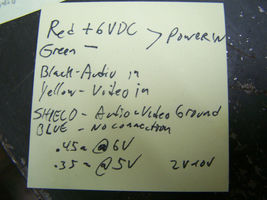 Red + 6VDC > Power in
Green -
Black - Audio in
Yellow - Video in
SHIELD - Audio + Video Ground
BLUE - No connection
.45a @ 6V
.35a @ 5V 2V-10V